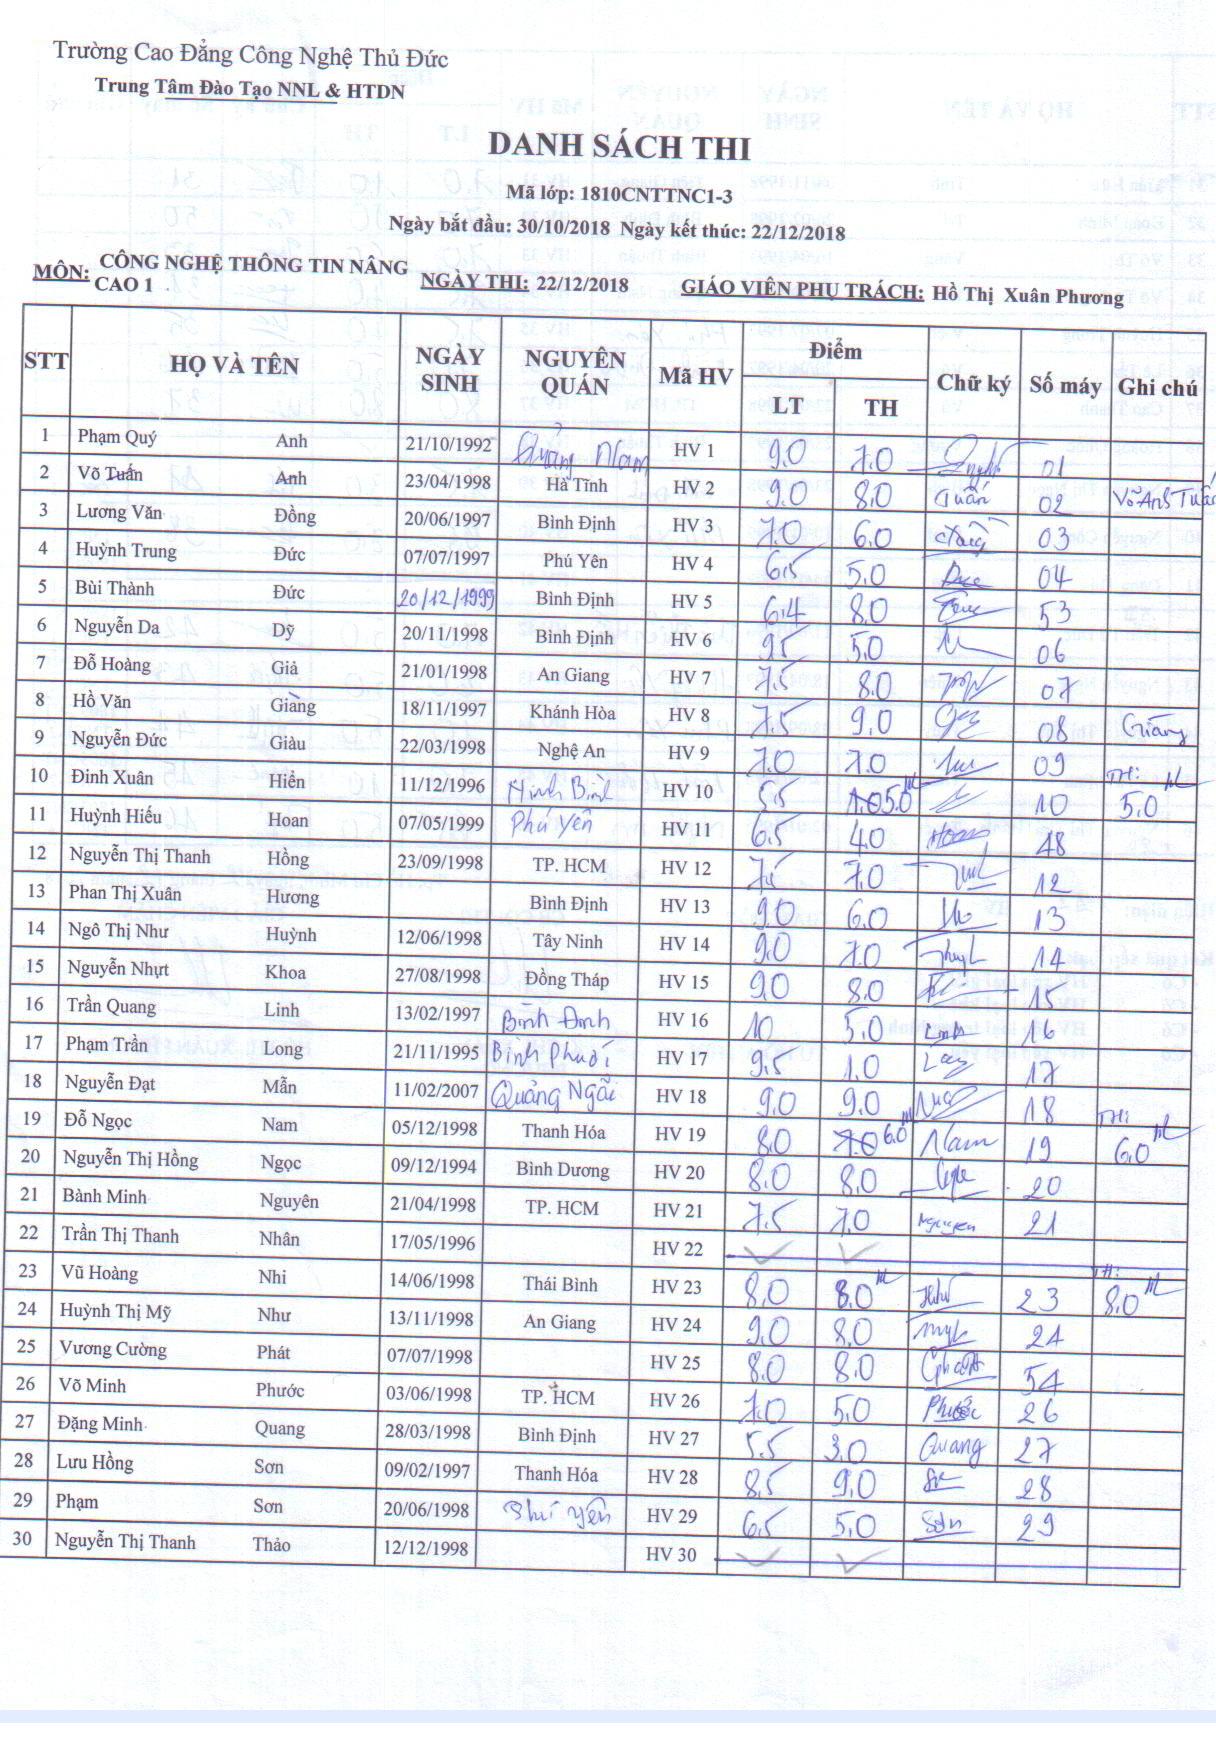 Trường Cao Đẳng Công Nghệ Thủ Đức
Trung Tâm Đào Tạo NNL & HTDN
DANH SÁCH THI
Mã lớp: 1810CNTTNC1-3
Ngày bắt đầu: 30/10/2018 Ngày kết thúc: 22/12/2018
MÔN: CÔNG NGHỆ THÔNG TIN NÂNG CAO 1 NGÀY THI: 22/12/2018 GIÁO VIÊN PHỤ TRÁCH: Hồ Thị Xuân Phương
STT HỌ VÀ TÊN NGÀY SINH NGUYÊN QUÁN Mã HV Điểm LT TH Chữ ký Số máy Ghi chú
1 Phạm Quý Anh 21/10/1992 Quảng Nam HV 1 9.0 7.0 01
2 Võ Tuấn Anh 23/04/1998 Hà Tĩnh HV 2 9.0 8.0 Tuấn 02 Võ Anh Tuấn
3 Lương Văn Đồng 20/06/1997 Bình Định HV 3 7.0 6.0 03
4 Huỳnh Trung Đức 07/07/1997 Phú Yên HV 4 6.5 5.0 04
5 Bùi Thành Đức 20/12/1999 Bình Định HV 5 6.4 8.0 53
6 Nguyễn Da Dỹ 20/11/1998 Bình Định HV 6 9.5 5.0 06
7 Đỗ Hoàng Giả 21/01/1998 An Giang HV 7 7.5 8.0 07
8 Hồ Văn Giảng 18/11/1997 Khánh Hòa HV 8 7.5 9.0 08 Giảng
9 Nguyễn Đức Giàu 22/03/1998 Nghệ An HV 9 7.0 7.0 09
10 Đinh Xuân Hiền 11/12/1996 Ninh Bình HV 10 5.5 5.0 10 TH: 5.0
11 Huỳnh Hiếu Hoan 07/05/1999 Phú Yên HV 11 6.5 4.0 Hoan 48
12 Nguyễn Thị Thanh Hồng 23/09/1998 TP. HCM HV 12 7.5 7.0 12
13 Phan Thị Xuân Hương Bình Định HV 13 9.0 6.0 13
14 Ngô Thị Như Huỳnh 12/06/1998 Tây Ninh HV 14 9.0 7.0 14
15 Nguyễn Nhựt Khoa 27/08/1998 Đồng Tháp HV 15 9.0 8.0 15
16 Trần Quang Linh 13/02/1997 Bình Định HV 16 10 5.0 Linh 16
17 Phạm Trần Long 21/11/1995 Bình Phước HV 17 9.5 1.0 17
18 Nguyễn Đạt Mẫn 11/02/2007 Quảng Ngãi HV 18 9.0 9.0 18
19 Đỗ Ngọc Nam 05/12/1998 Thanh Hóa HV 19 8.0 7.0 6.0 Nam 19 TH: 6.0
20 Nguyễn Thị Hồng Ngọc 09/12/1994 Bình Dương HV 20 8.0 8.0 20
21 Bành Minh Nguyên 21/04/1998 TP. HCM HV 21 7.5 7.0 Nguyen 21
22 Trần Thị Thanh Nhân 17/05/1996 HV 22
23 Vũ Hoàng Nhi 14/06/1998 Thái Bình HV 23 8.0 8.0 23 TH: 8.0
24 Huỳnh Thị Mỹ Như 13/11/1998 An Giang HV 24 9.0 8.0 24
25 Vương Cường Phát 07/07/1998 HV 25 8.0 8.0 54
26 Võ Minh Phước 03/06/1998 TP. HCM HV 26 7.0 5.0 Phước 26
27 Đặng Minh Quang 28/03/1998 Bình Định HV 27 5.5 3.0 Quang 27
28 Lưu Hồng Sơn 09/02/1997 Thanh Hóa HV 28 8.5 9.0 28
29 Phạm Sơn 20/06/1998 Phú Yên HV 29 6.5 5.0 Sơn 29
30 Nguyễn Thị Thanh Thảo 12/12/1998 HV 30